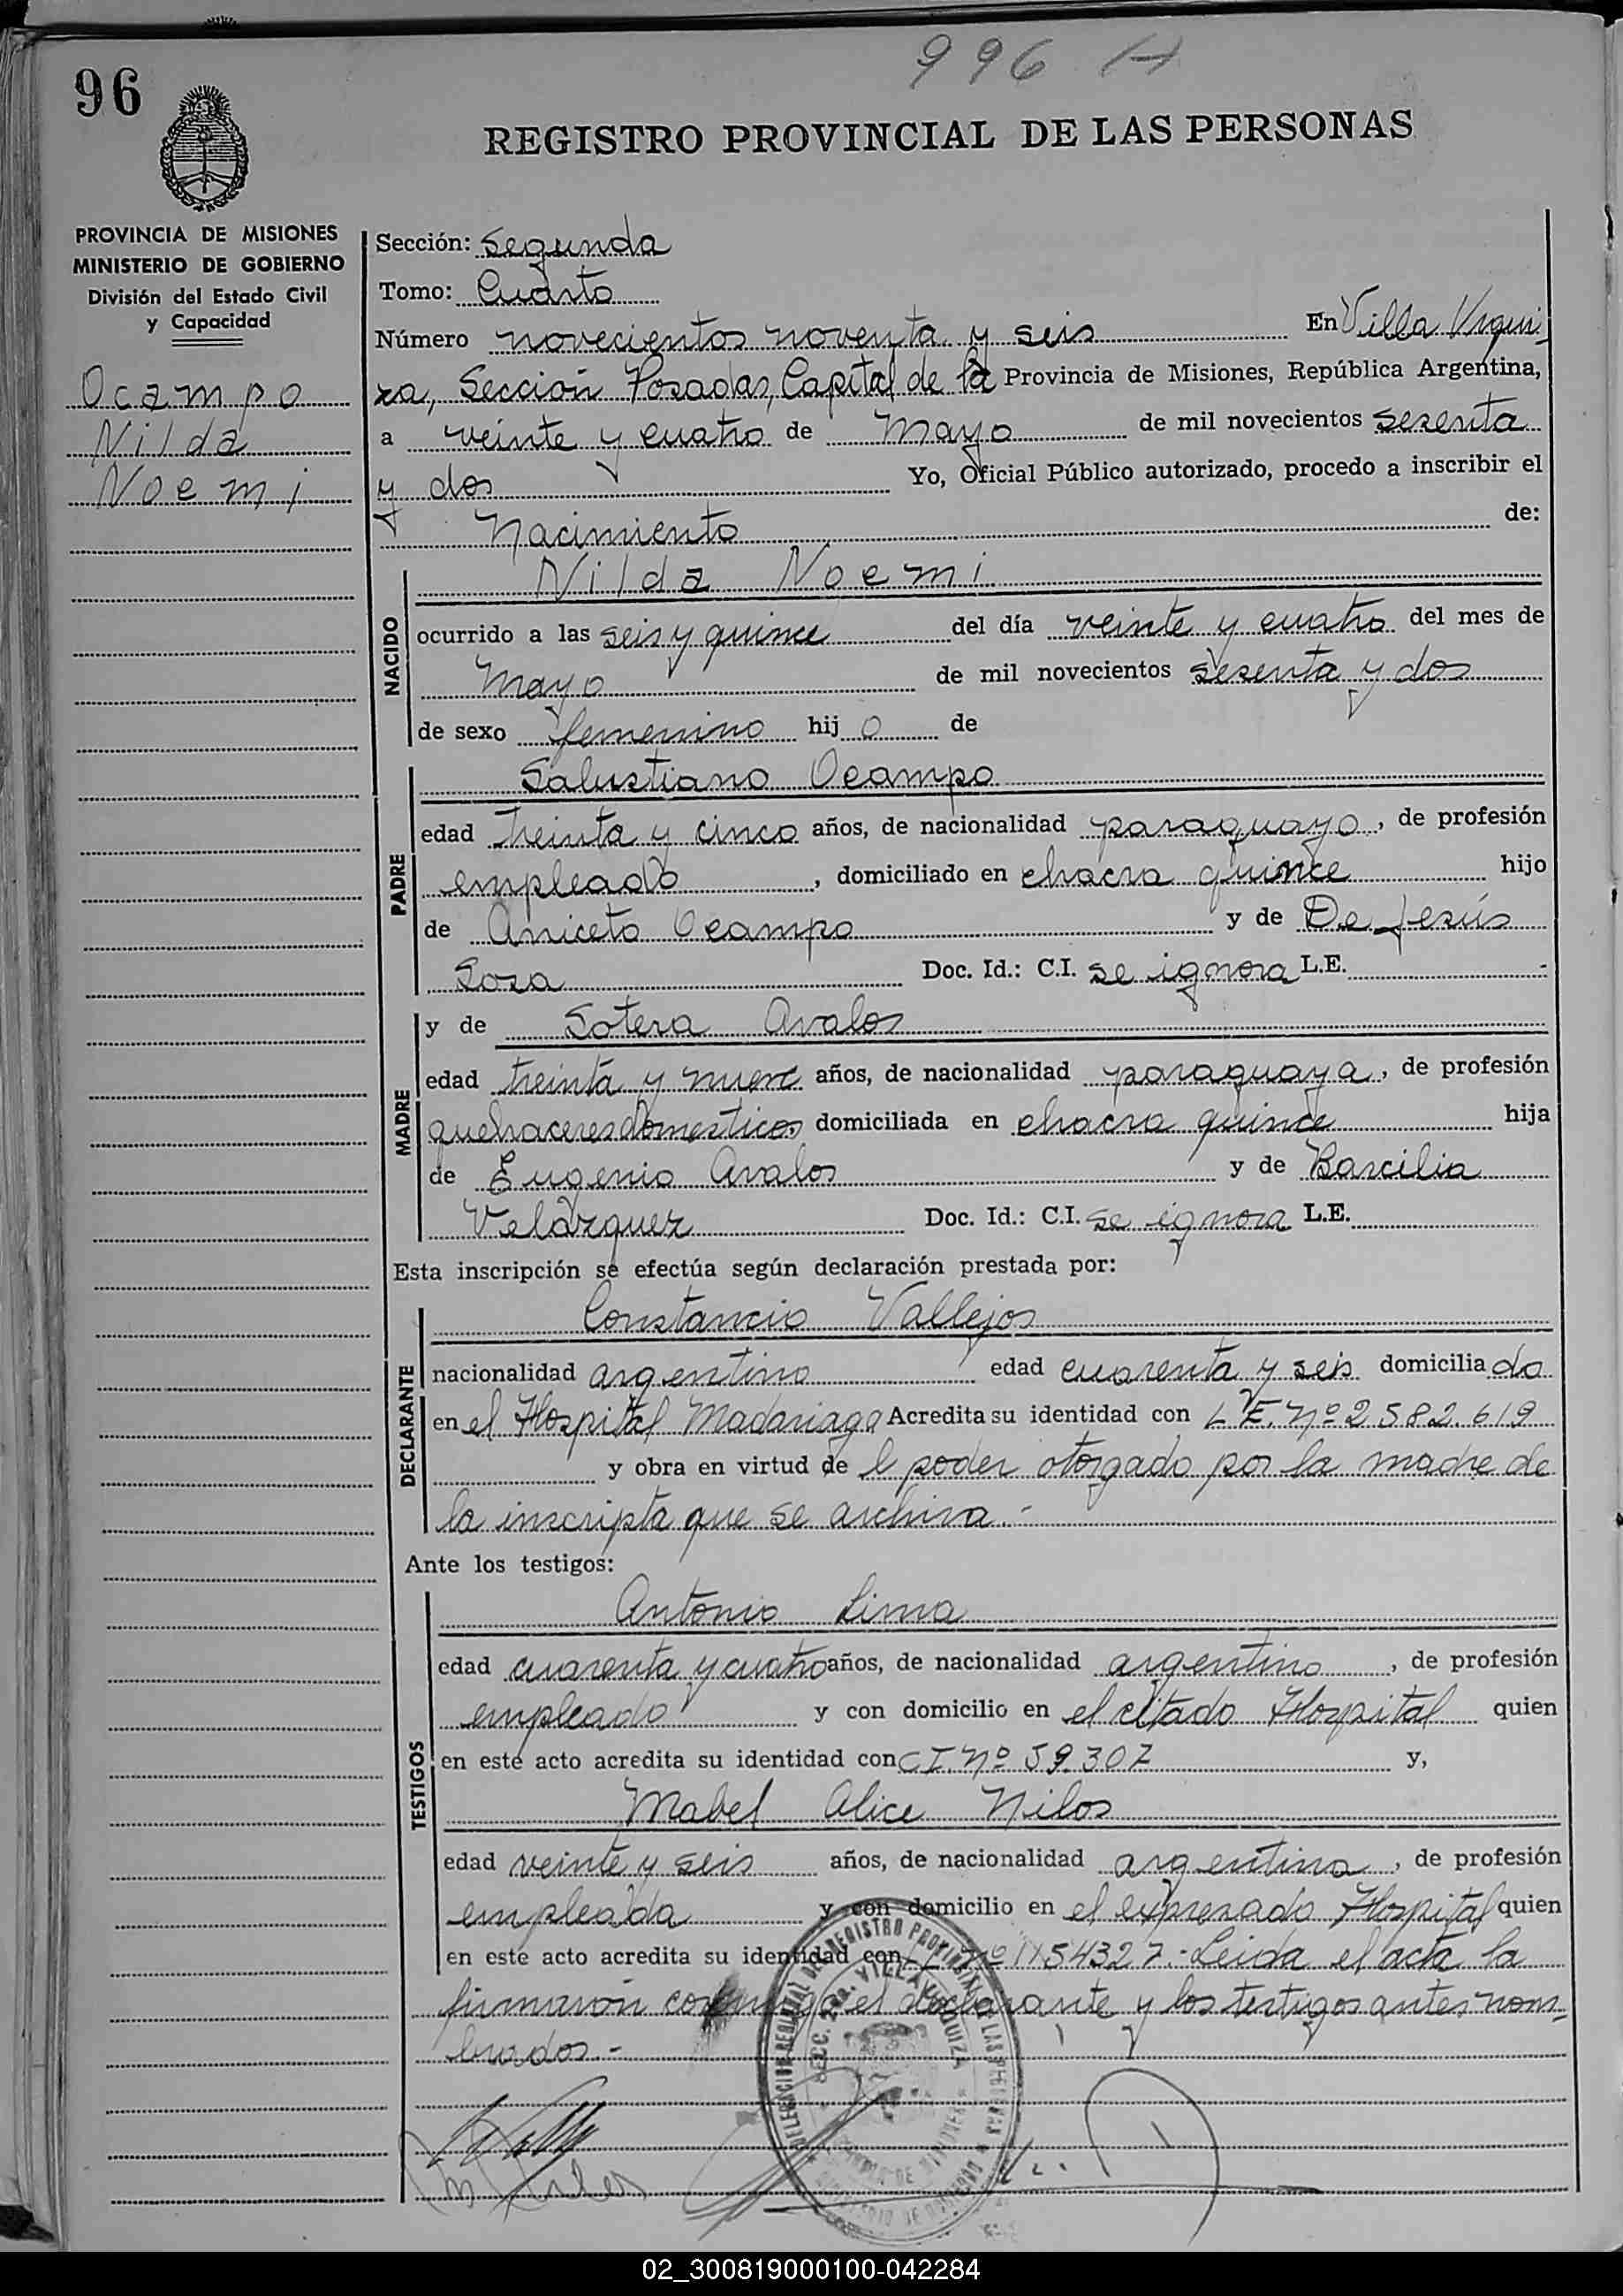 996 H
96
REGISTRO PROVINCIAL DE LAS PERSONAS
PROVINCIA DE MISIONES
MINISTERIO DE GOBIERNO
División del Estado Civil
y Capacidad
Ocampo
Nilda
Noemi
Sección: Segunda
Tomo: Cuarto
Número novecientos noventa y seis En Villa Urqui
za, Sección Posadas, Capital de la Provincia de Misiones, República Argentina,
a veinte y cuatro de Mayo de mil novecientos sesenta
y dos Yo, Oficial Público autorizado, procedo a inscribir el
Nacimiento de:
NACIDO
Nilda Noemi
ocurrido a las seis y quince del día veinte y cuatro del mes de
Mayo de mil novecientos sesenta y dos
de sexo femenino hij o de
PADRE
Salustiano Ocampo
edad treinta y cinco años, de nacionalidad paraguayo, de profesión
empleado, domiciliado en chacra quince hijo
de Aniceto Ocampo y de De Jesús
Sosa Doc. Id.: C.I. se ignora L.E. -
MADRE
y de Sotera Avalos
edad treinta y nueve años, de nacionalidad paraguaya, de profesión
quehaceres domesticos domiciliada en chacra quince hija
de Eugenio Avalos y de Barcilia
Velázquez Doc. Id.: C.I. se ignora L.E.
Esta inscripción se efectúa según declaración prestada por:
DECLARANTE
Constancio Vallejos
nacionalidad argentino edad cuarenta y seis domicilia do
en el Hospital Madariaga Acredita su identidad con L.E. Nº 2582.619
y obra en virtud de l poder otorgado por la madre de
la inscripta que se archiva.-
Ante los testigos:
TESTIGOS
Antonio Lima
edad cuarenta y cuatro años, de nacionalidad argentino, de profesión
empleado y con domicilio en el citado Hospital quien
en este acto acredita su identidad con C.I. Nº 59.307 y,
Mabel Alice Nilos
edad veinte y seis años, de nacionalidad argentina, de profesión
empleada y con domicilio en el expresado Hospital quien
en este acto acredita su identidad con Nº 1154327.- Leida el acta la
firmaron conmigo el declarante y los testigos antes nom
brados.-
DELEGACION REGIONAL DEL REGISTRO PROVINCIAL DE LAS PERSONAS
SECC. 2da. VILLA URQUIZA
02_300819000100-042284